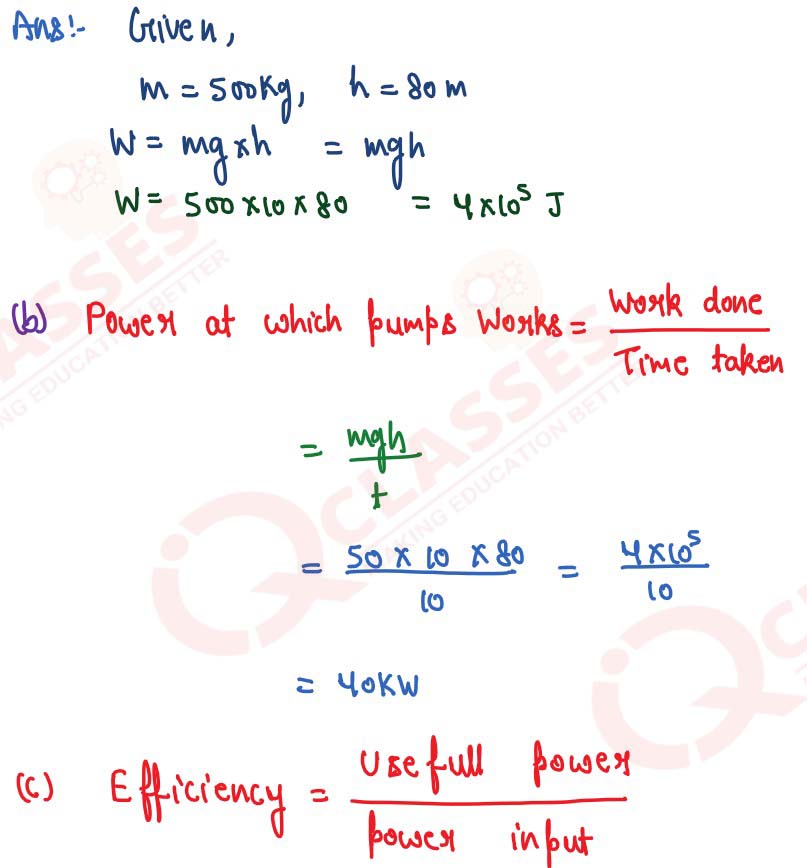 Ans:- Given,
m = 500kg, h = 80 m
W = mg x h = mgh
W = 500 x 10 x 80 = 4 x 10⁵ J
(b) Power at which pumps Works = Work done / Time taken
= mgh / t
= 50 x 10 x 80 / 10 = 4 x 10⁵ / 10
= 40KW
(c) Efficiency = Usefull power / power input
iQ CLASSES
MAKING EDUCATION BETTER